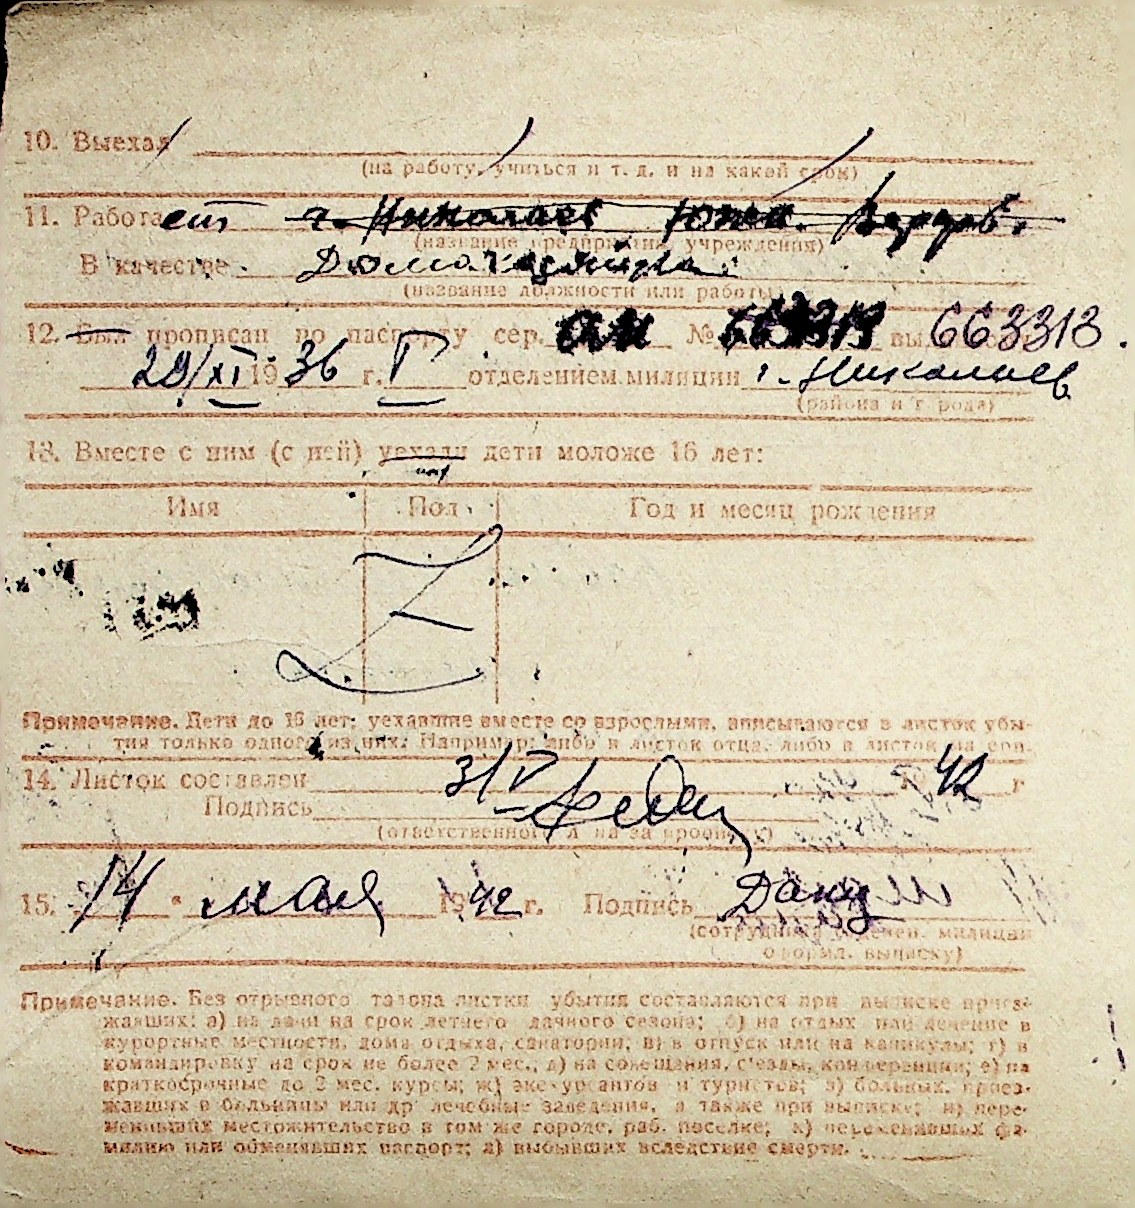 10. Выехал
(на работу, учиться и т. д. и на какой срок)
11. Работает г. Николаев Южн.
(название предприятия, учреждения)
В качестве Домохозяйка
(название должности или работы)
12. Был прописан по паспорту сер. № 663313
29/XI 1936 г. V отделением милиции г. Николаев
(района и города)
13. Вместе с ним (с ней) уехали дети моложе 16 лет:
нет
Имя Пол Год и месяц рождения
Z
Примечание. Дети до 16 лет, уехавшие вместе со взрослыми, вписываются в листок убы-
тия только одного из них. Например: либо в листок отца, либо в листок матери.
14. Листок составлен 3/V 1942 г
Подпись
(ответственного л на за прописку)
15. 14 " мая 1942 г. Подпись
(сотрудника отделен. милиции
оформл. выписку)
Примечание. Без отрывного талона листки убытия составляются при выписке приез-
жавших: а) на дачи на срок летнего дачного сезона; б) на отдых или лечение в
курортные местности, дома отдыха, санатории; в) в отпуск или на каникулы; г) в
командировку на срок не более 2 мес.; д) на совещания, съезды, конференции; е) на
краткосрочные до 2 мес. курсы; ж) экскурсантов и туристов; з) больных, приез-
жавших в больницы или др лечебные заведения, а также при выписке; и) пере-
менивших местожительство в том же городе, раб. поселке; к) переменивших фа-
милию или обменявших паспорт; л) выбывших вследствие смерти.